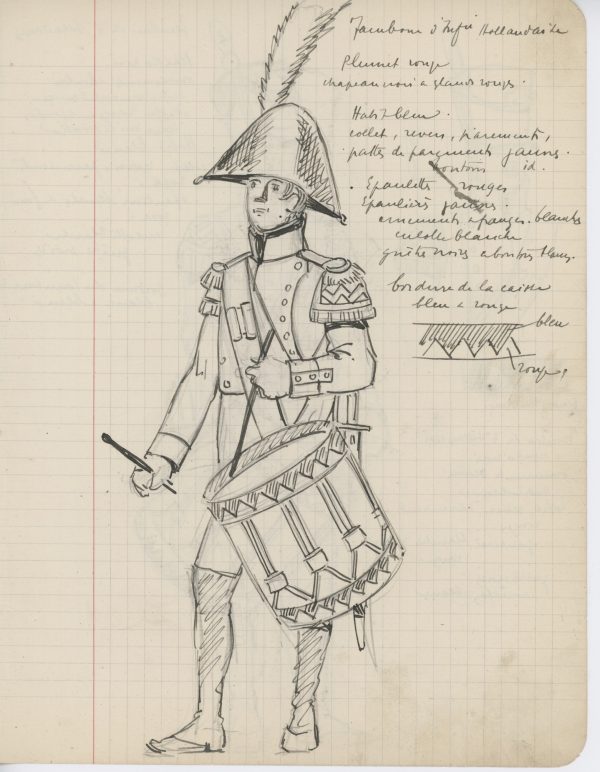 Tambour d'Infie Hollandaise
Plumet rouge
chapeau noir a glands rouges.
Habit bleu.
collet, revers, parements,
pattes de parements jaunes.
boutons id.
Epaulettes rouges
jaunes.
ornements a franges blanches
culotte blanche
guêtres noires a boutons blancs.
bordure de la caisse
bleu a rouge
bleu
rouge